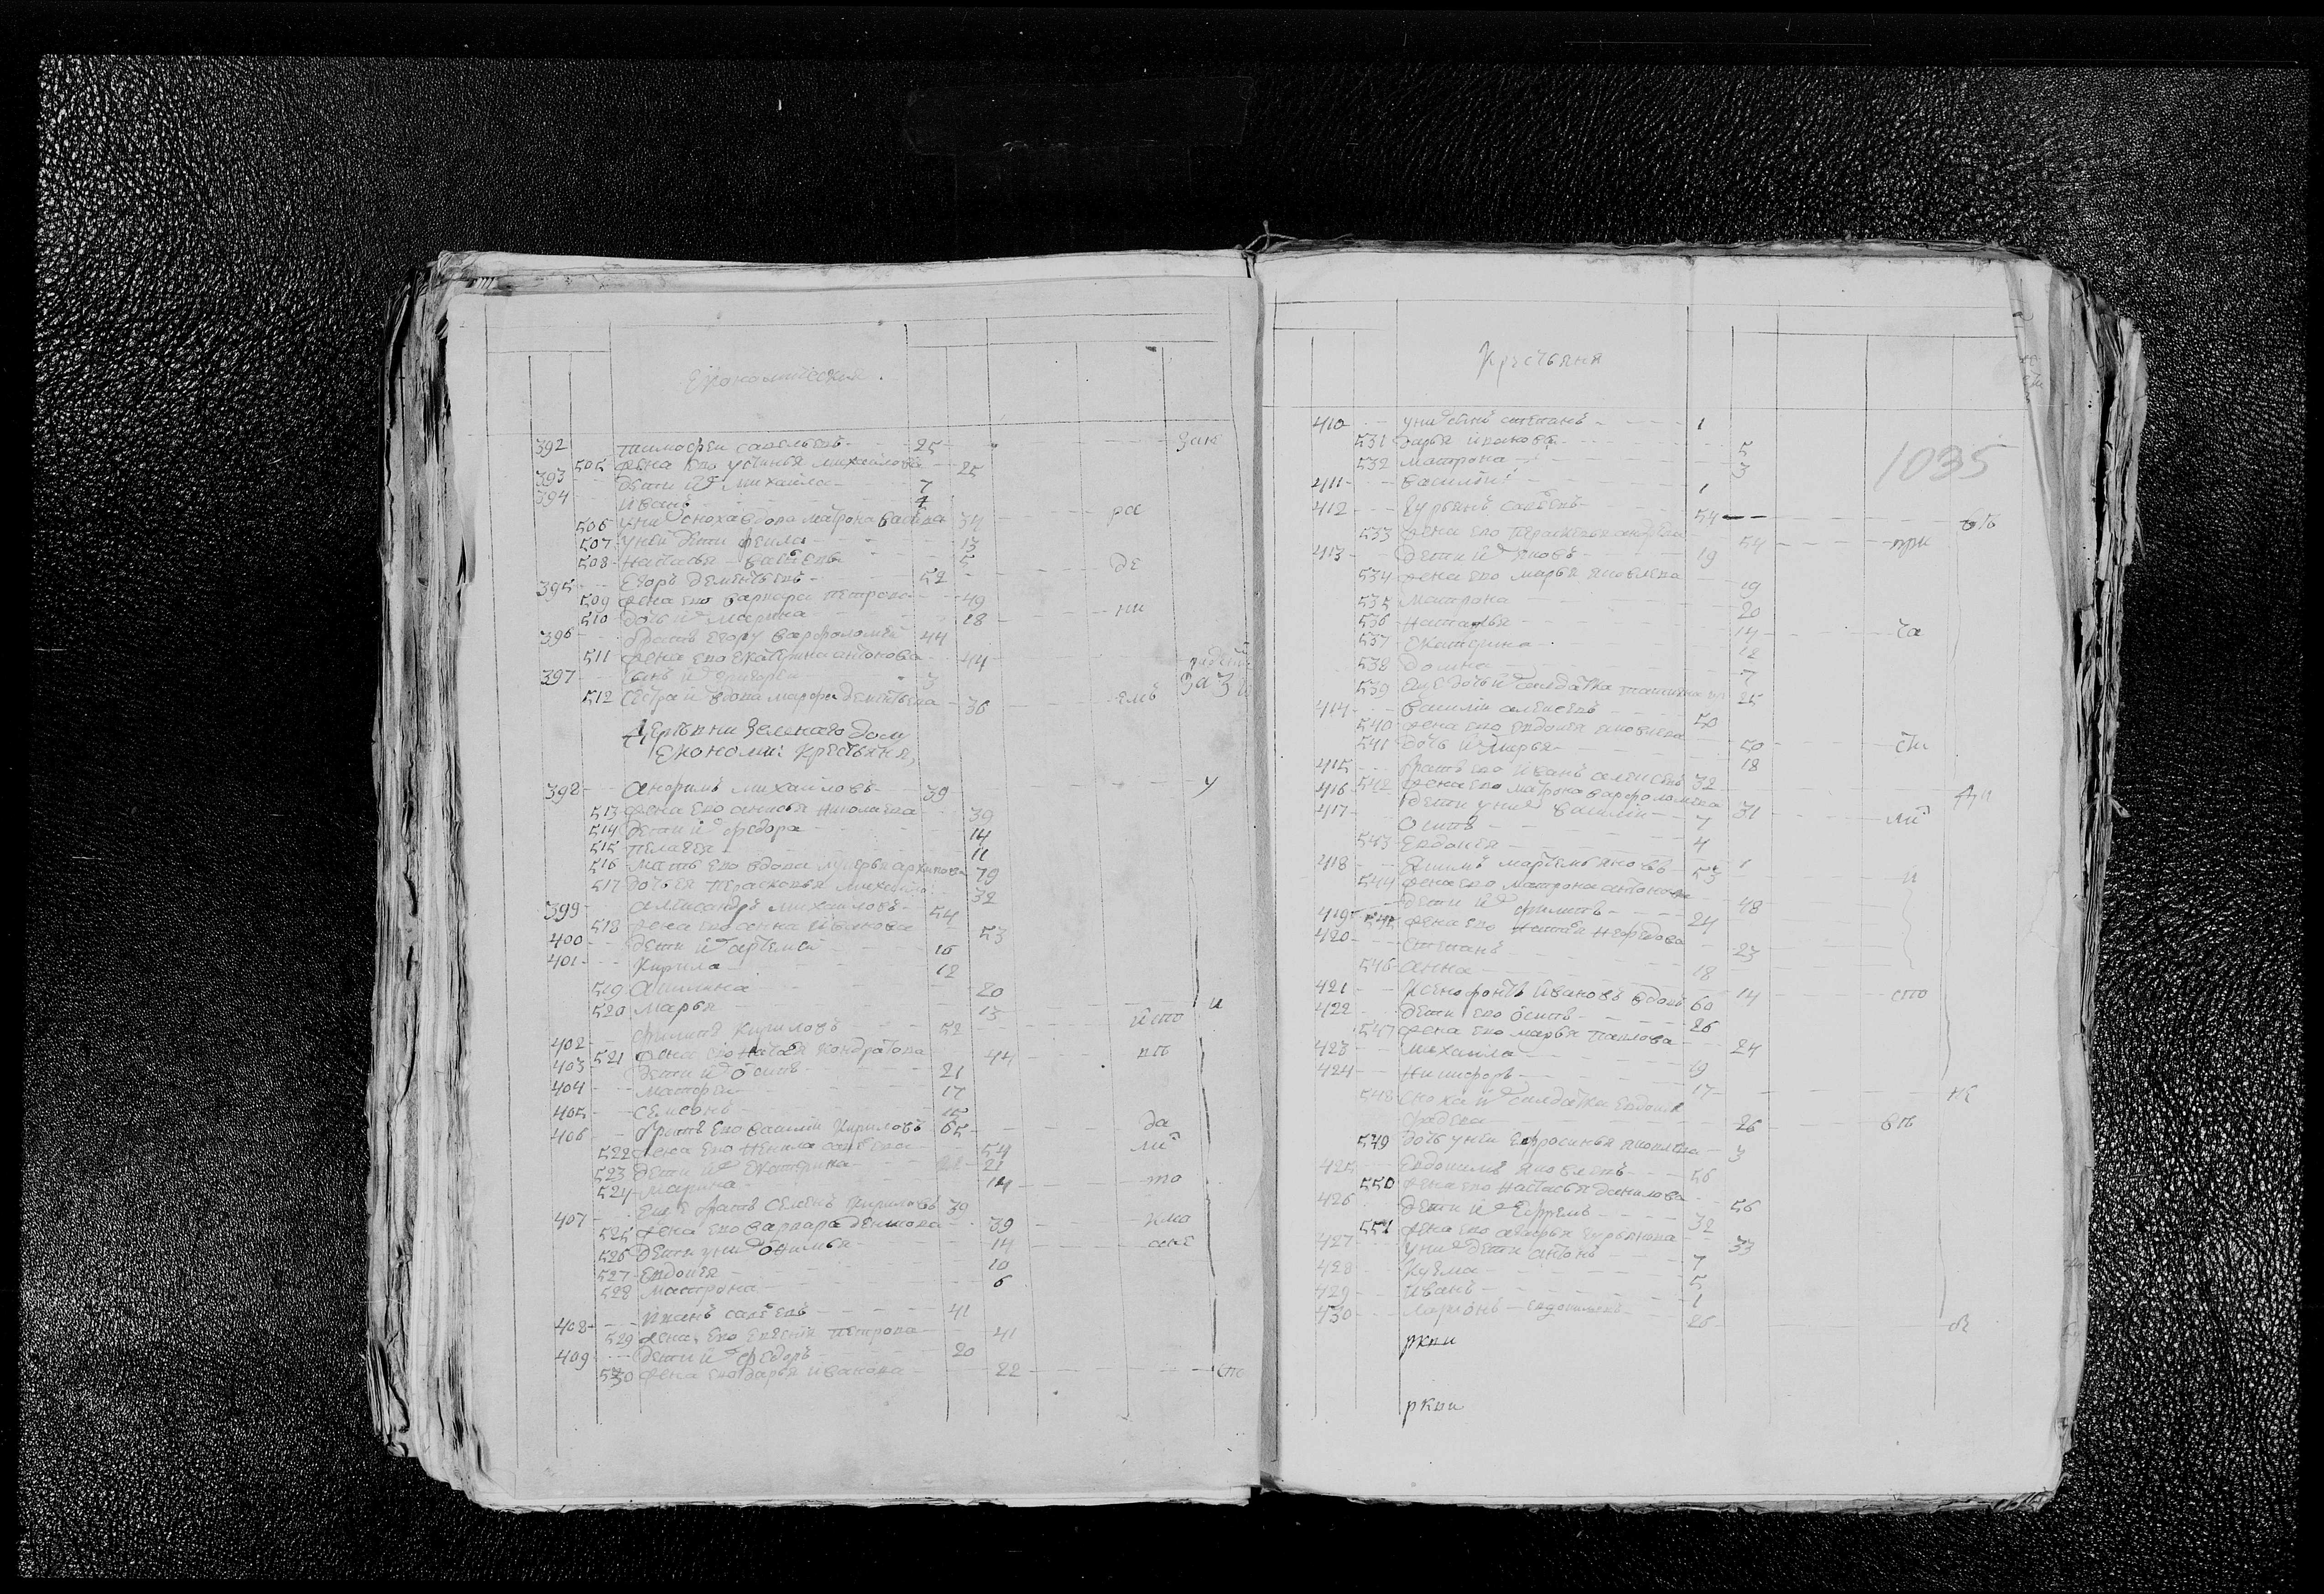 Економическия
392 тимофеи савельевъ 25 зак
505 жена ево устинья михаилова 25
393 дети ихъ михаила 7
394 иванъ 4
506 уних сноха вдова матрона 34 рос
507 уней дети фекла 13
508 настасья 5 де
395 Егоръ дементьевъ 52
509 жена ево варвара петрова 49
510 дочь ихъ марина 18 ни
396 братъ егору варфоломей 44
511 жена ево екатерина антонова 44
397 сынъ ихъ григореи 3
512 сестра их вдова марфа дементьева 36 емъ
деревни зеленаго дому
Економии крестьяня
392 анофримъ михаиловъ 39 у
513 жена ево анисья николаева 39
514 дети ихъ федора 14
515 пелагея 11
516 мать ево вдова лукерья архипова 79
517 дочь ея прасковья михаила 32
399 александръ михаиловъ 54
518 жена ево анна иванова 53
400 дети ихъ артемеи 16
401 кирила 12
519 акилина 20
520 марья 13 и
402 филипъ кириловъ 52 исто
521 жена ево наталя кондратова 44 пъ
403 дети ихъ осипъ 21
404 матфеи 17
405 семионъ 15
406 братъ ево василии кириловъ 65 да
522 жена ево ненила савельева 54 ли
523 дети ихъ екатерина 21
524 марина 14 то
407 еще братъ семенъ кириловъ 39
525 жена ево варвара денисова 39
526 дети уних 14
527 евдокея 10
528 матрона 6
408 савельевъ 41
529 жена ево евгения петрова 41
409 дети ихъ федоръ 20
530 жена ево дарья иванова 22 спо
Крестьяня
1035
410 уних сынъ степанъ 1
531 дарья иванова 5
532 матрона 3
411 василии 1
412 гурьянъ савельевъ 54
533 жена ево прасковья 54 при
413 дети ихъ яковъ 19
534 жена ево марья яковлева 19
535 матрона 20
536 наталья 14 ча
537 екатерина 12
538 домна 7
539 еще дочь ихъ салдатка 25
414 василии алексеевъ 50
540 жена ево евдокея яковлева 50 сти
541 дочь ихъ марья 18
415 братъ ево иванъ алексеевъ 32
542 жена ево матрона варфоломеева 31
416 дети уних василии 7
417 осипъ 4
543 евдокея 1
418 якимъ мартемьяновъ 53 и
544 жена ево матрона антонова 48
419 дети ихъ филипъ 24
545 жена ево нефедова 23
420 степанъ 18
546 анна 14 сто
421 ксенофонтъ ивановъ вдовъ 60
422 дети ево осипъ 26
547 жена ево марья павлова 24
423 михаила 19
424 никифоръ 17
548 сноха их салдатка евдокея
26
549 дочь уней ефросинья яковлева 3
425 евдокимъ яковлевъ 56
550 жена ево настасья данилова 56
426 дети ихъ ефремъ 32
551 жена ево гурьянова 33
427 уних дети антонъ 7
428 кузма 5
429 иванъ 1
430 ларионъ евдокимовъ 26
ркпи
ркпи